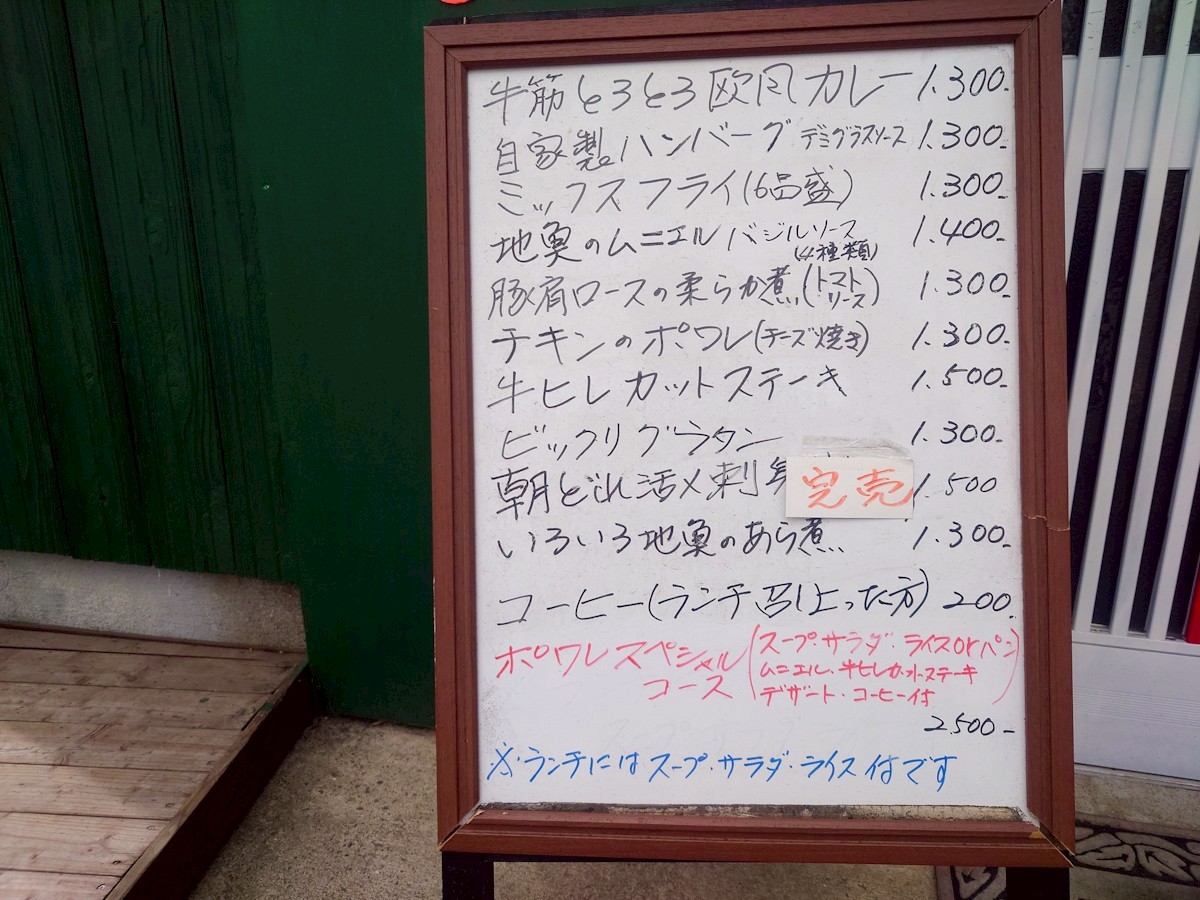 牛筋とろとろ欧風カレー 1.300-
自家製ハンバーグ デミグラスソース 1.300-
ミックスフライ(6品盛) 1.300-
地魚のムニエル バジルソース 1.400-
(4種類)
豚肩ロースの柔らか煮(トマトソース) 1.300-
チキンのポワレ(チーズ焼き) 1.300-
牛ヒレカットステーキ 1.500-
ビックリグラタン 1.300-
朝どれ活〆刺身 完売 1.500
いろいろ地魚のあら煮 1.300-
コーヒー(ランチ召し上った方) 200.
ポワレスペシャルコース (スープ・サラダ・ライスorパン
ムニエル・牛ヒレカットステーキ
デザート・コーヒー付)
2.500-
※ランチにはスープ・サラダ・ライス付です